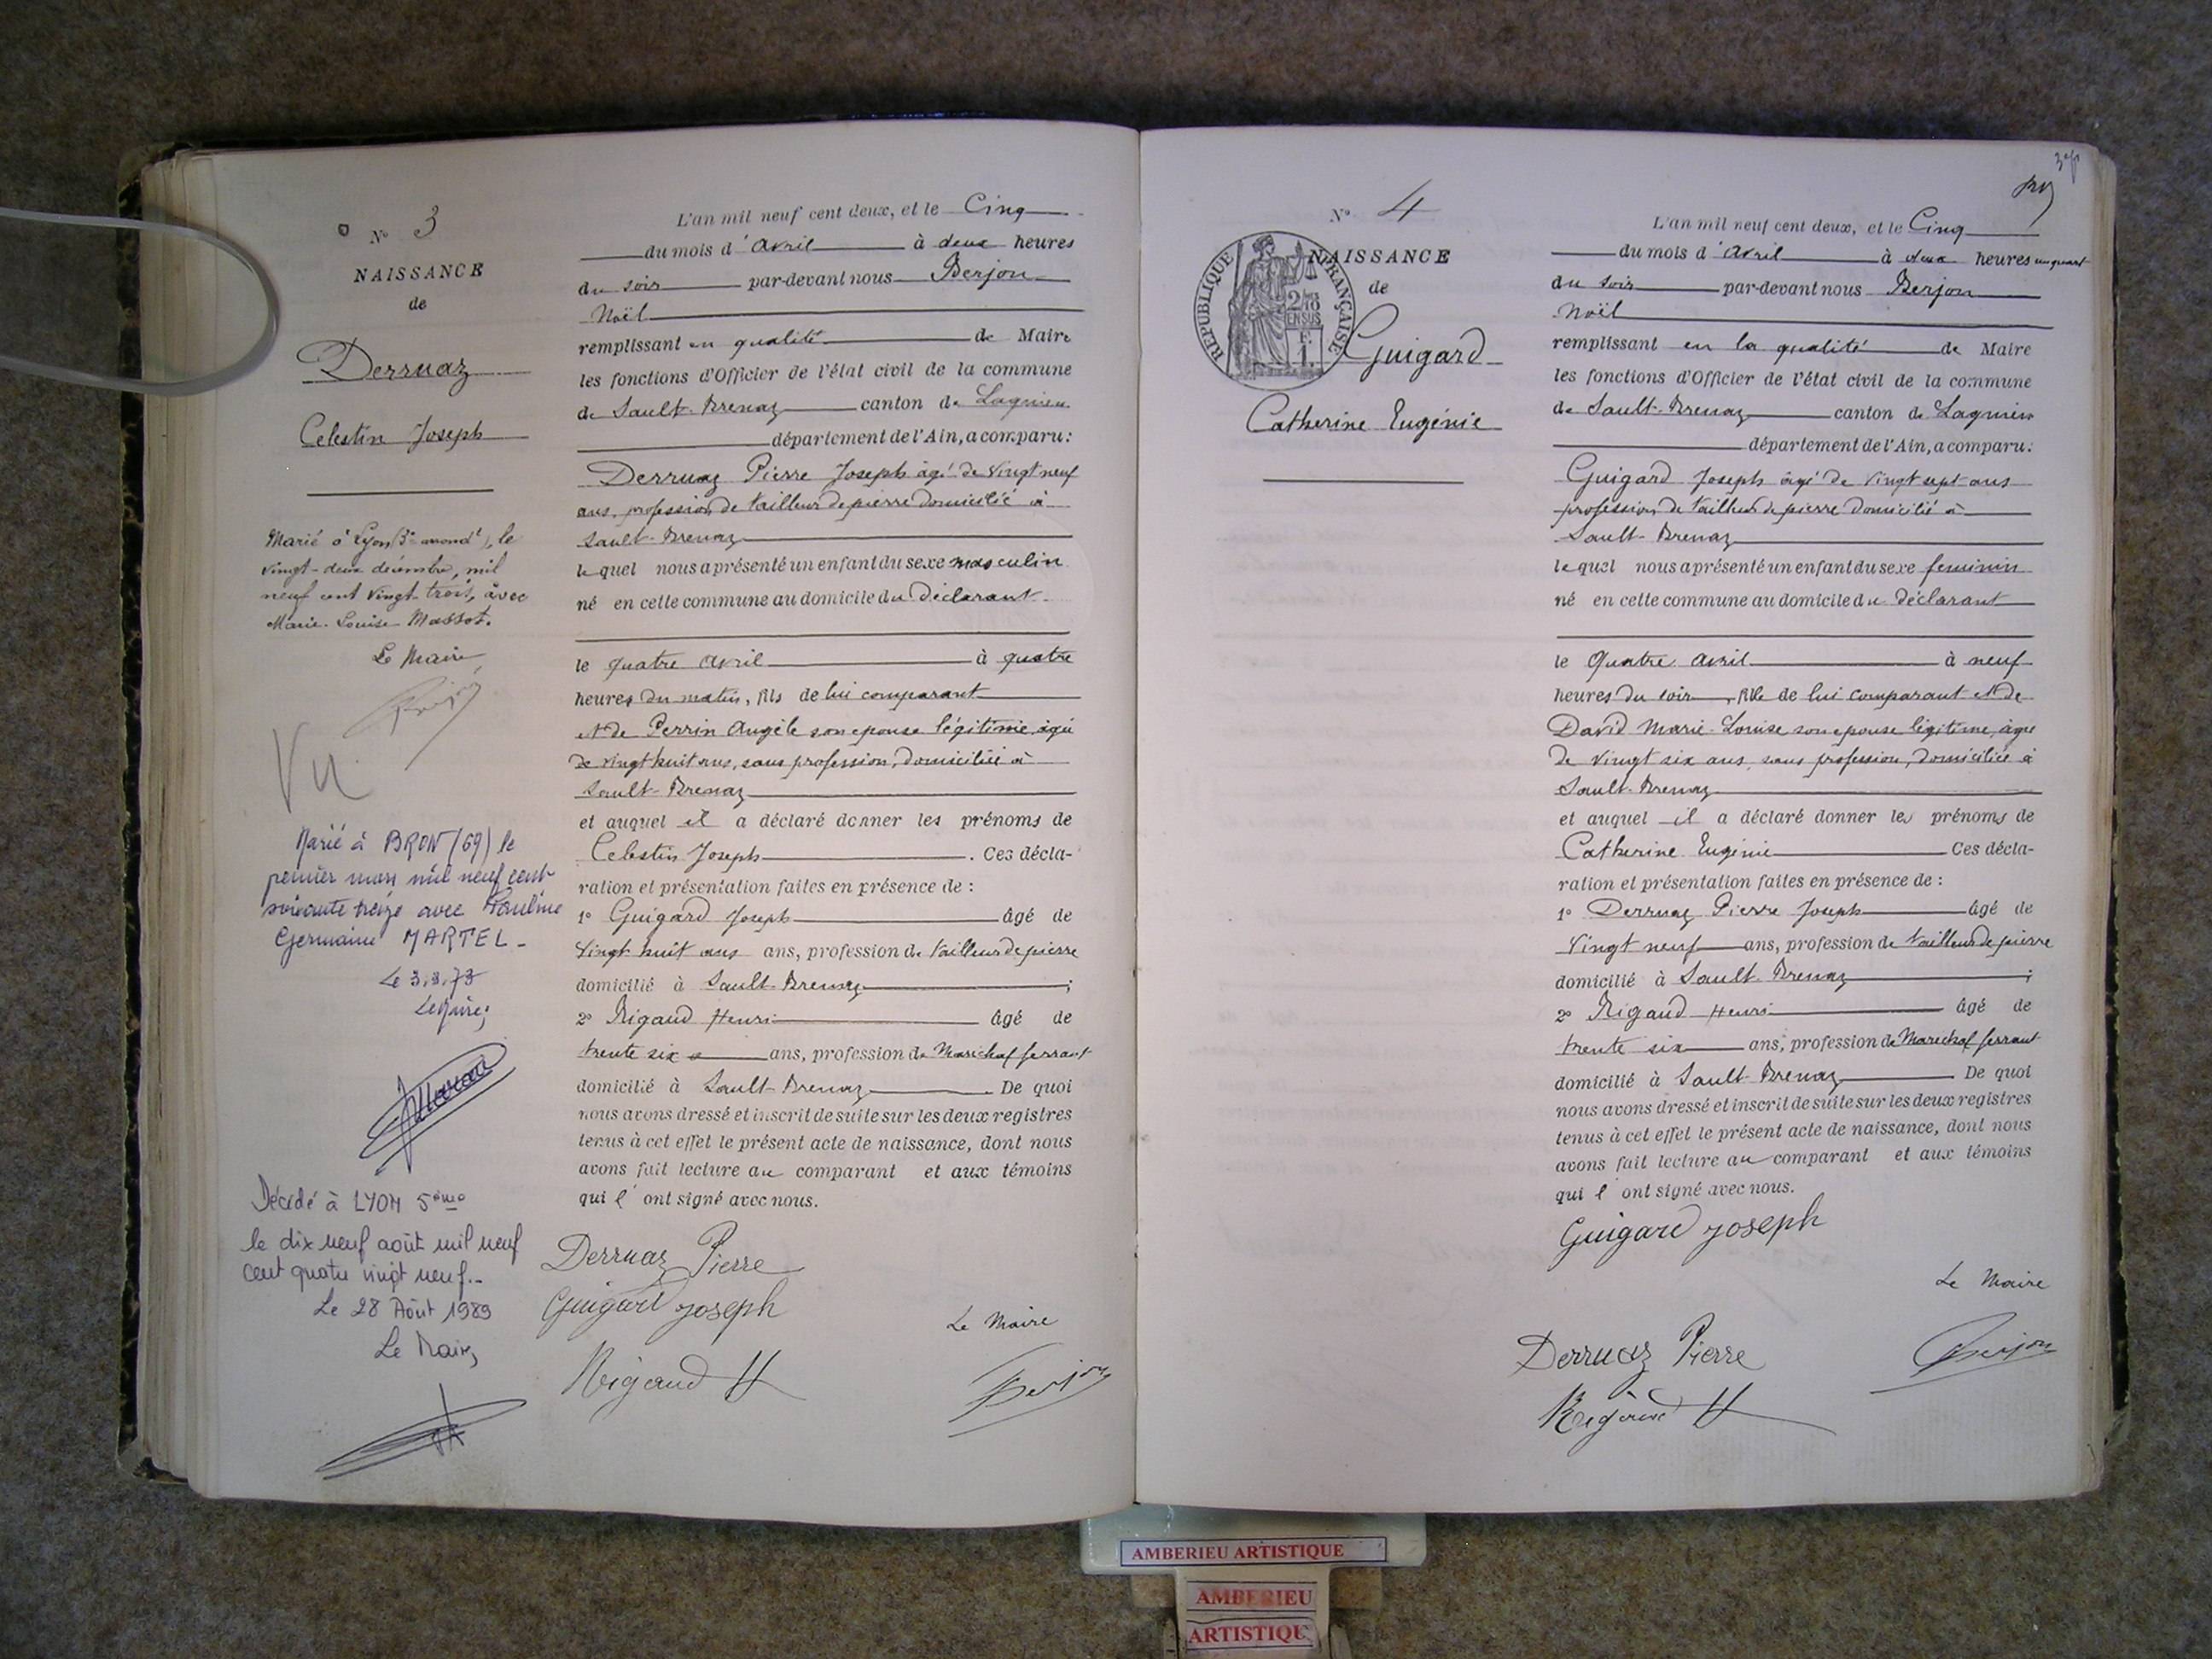 N° 3
NAISSANCE
de
Derruaz
Celestin Joseph
Marié à Lyon (3e arrondt), le
vingt-deux décembre, mil
neuf cent vingt-trois, avec
Marie-Louise Massot.
Le Maire,
Vu
Marié à BRON (69) le
premier mars mil neuf cent
soixante treize avec Pauline
Germaine MARTEL -
Le 3.3.73
Le Maire;
Décédé à LYON 5ème
le dix neuf août mil neuf
cent quatre vingt neuf.-
Le 28 Août 1989
Le Maire,
L'an mil neuf cent deux, et le Cinq
du mois d'avril à deux heures
du soir par-devant nous Berjon
Noël
remplissant en qualité de Maire
les fonctions d'Officier de l'état civil de la commune
de Sault-Brenaz canton de Lagnieu
département de l'Ain, a comparu:
Derruaz Pierre Joseph âgé de Vingt neuf
ans, profession de tailleur de pierre domicilié à
Sault-Brenaz
lequel nous a présenté un enfant du sexe masculin
né en cette commune au domicile du déclarant
le quatre avril à quatre
heures du matin, fils de lui comparant
et de Perrin Angèle son epouse légitime, agée
de vingt huit ans, sans profession, domiciliée à
Sault-Brenaz
et auquel il a déclaré donner les prénoms de
Celestin Joseph. Ces décla-
ration et présentation faites en présence de :
1° Guigard Joseph âgé de
Vingt huit ans ans, profession de tailleur de pierre
domicilié à Sault-Brenaz ;
2° Rigaud Henri âgé de
trente six ans, profession de Maréchal ferrant
domicilié à Sault-Brenaz. De quoi
nous avons dressé et inscrit de suite sur les deux registres
tenus à cet effet le présent acte de naissance, dont nous
avons fait lecture au comparant et aux témoins
qui l'ont signé avec nous.
Derruaz Pierre
Guigard Joseph
Le Maire
Rigaud H
Berjon
N° 4
NAISSANCE
de
RÉPUBLIQUE FRANÇAISE
2/10 EN SUS
F. 1.
Guigard
Catherine Eugénie
L'an mil neuf cent deux, et le Cinq
du mois d'avril à deux heures un quart
du soir par-devant nous Berjon
Noël
remplissant en la qualité de Maire
les fonctions d'Officier de l'état civil de la commune
de Sault-Brenaz canton de Lagnieu
département de l'Ain, a comparu:
Guigard Joseph âgé de Vingt sept ans
profession de tailleur de pierre domicilié à
Sault-Brenaz
lequel nous a présenté un enfant du sexe feminin
né en cette commune au domicile du déclarant
le Quatre avril à neuf
heures du soir, fille de lui comparant et de
David Marie-Louise son epouse légitime, agée
de Vingt six ans, sans profession, domiciliée à
Sault-Brenaz
et auquel il a déclaré donner les prénoms de
Catherine Eugénie Ces décla-
ration et présentation faites en présence de :
1° Derruaz Pierre Joseph âgé de
Vingt neuf ans, profession de tailleur de pierre
domicilié à Sault-Brenaz ;
2° Rigaud Henri âgé de
trente six ans, profession de Maréchal ferrant
domicilié à Sault-Brenaz De quoi
nous avons dressé et inscrit de suite sur les deux registres
tenus à cet effet le présent acte de naissance, dont nous
avons fait lecture au comparant et aux témoins
qui l'ont signé avec nous.
Guigard Joseph
Le Maire
Derruaz Pierre
Berjon
Rigaud H
AMBERIEU ARTISTIQUE
AMBERIEU
ARTISTIQUE